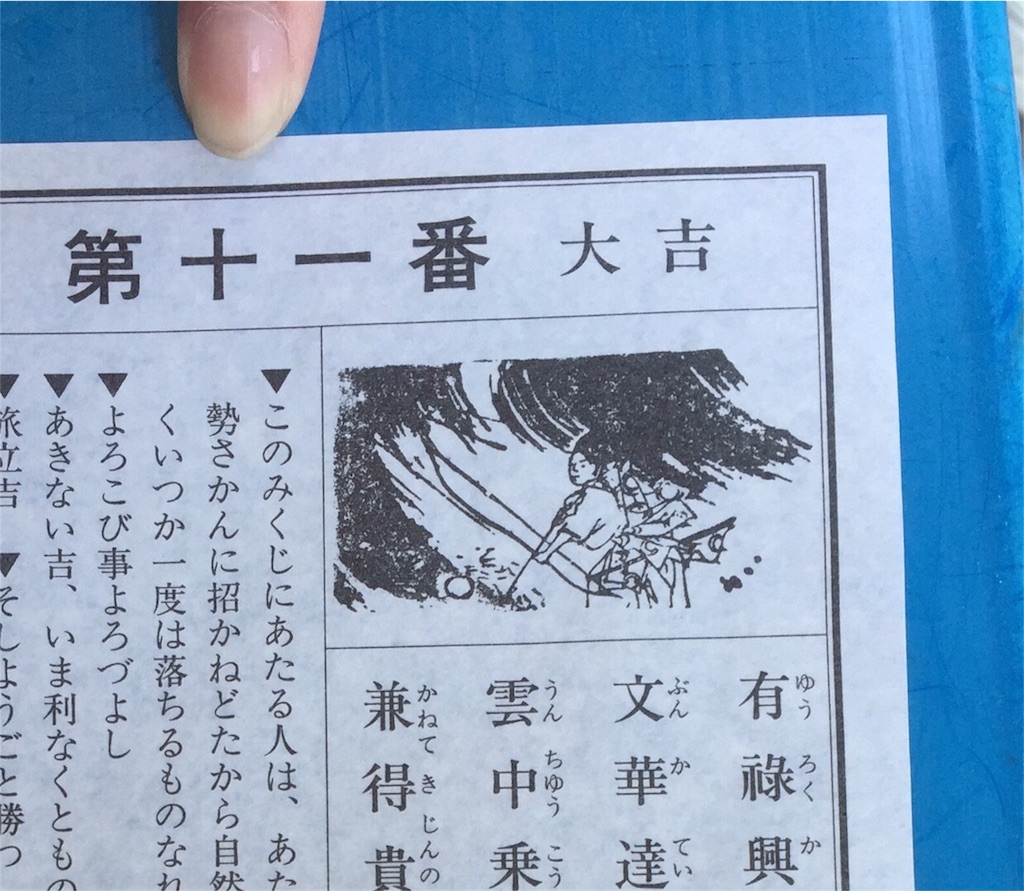 第十一番 大吉
有祿興
ゆうろくか
文華達
ぶんかてい
雲中乗
うんちゆうこう
兼得貴
かねてきじんの
▼このみくじにあたる人は、あた
勢さかんに招かねどたから自然
くいつか一度は落ちるものなれ
▼よろこび事よろづよし
▼あきない吉、いま利なくともの
▼旅立吉 ▼そしようごと勝つ